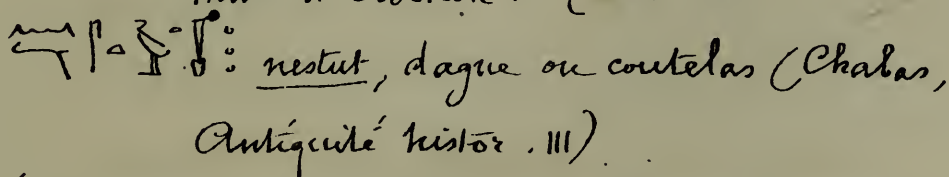 nestut, dague ou coutelas (Chabas,
Antiquité histor. III)